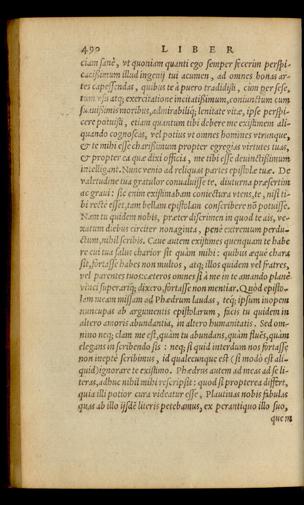 490 LIBER
ciam sanè, vt quoniam quanti ego semper fecerim perspi-
cacissimum illud ingenij tui acumen, ad omnes bonas ar-
tes capessendas, quibus te à puero tradidisti, cùm per sese,
tum vsu atq; exercitatione incitatissimum, coniunctum cum
suauissimis moribus, admirabiliq; lenitate vitæ, ipse perspi-
cere potuisti, etiam quantum tibi debere me existimem ali-
quando cognoscas, vel potius vt omnes homines vtrunque,
& te mihi esse charissimum propter egregias virtutes tuas,
& propter ea quæ dixi officia, me tibi esse deuinctissimum
intelligant. Nunc venio ad reliquas partes epistolæ tuæ. De
valetudine tua gratulor conualuisse te, diuturna præsertim
ac graui: sic enim existimabam coniectura vtens, te, nisi ti-
bi rectè esset, tam bellam epistolam conscribere nō potuisse.
Nam tu quidem nobis, præter diserimen in quod te ais, ve-
xatum diebus circiter nonaginta, penè extremum perdu-
ctum, nihil scribis. Caue autem existimes quenquam te habe
re cui tua salus charior sit quàm mihi: quibus æquè chara
sit, fortasse habes non multos, atq; illos quidem vel fratres,
vel parentes tuos: cæteros omnes si à me in te amando planè
vinci superariq; dixero, fortasse non mentiar. Quòd episto-
lam meam missam ad Phædrum laudas, teq; ipsum inopem
nuncupas ab argumentis epistolarum, facis tu quidem in
altero amoris abundantia, in altero humanitatis. Sed om-
nino neq; clam me est, quàm tu abundans, quàm fluës, quàm
elegans in scribendo sis: neq; si quid interdum nos fortasse
non ineptè scribimus, id qualecunque est (si modò est ali-
quid) ignorare te existimo. Phædrus autem ad meas ad se li-
teras, adhuc nihil mihi rescripsit: quod si propterea differt,
quia illi potior cura videatur esse, Plautinas nobis fabulas
quas ab illo ijsdē literis petebamus, ex perantiquo illo suo,
quem